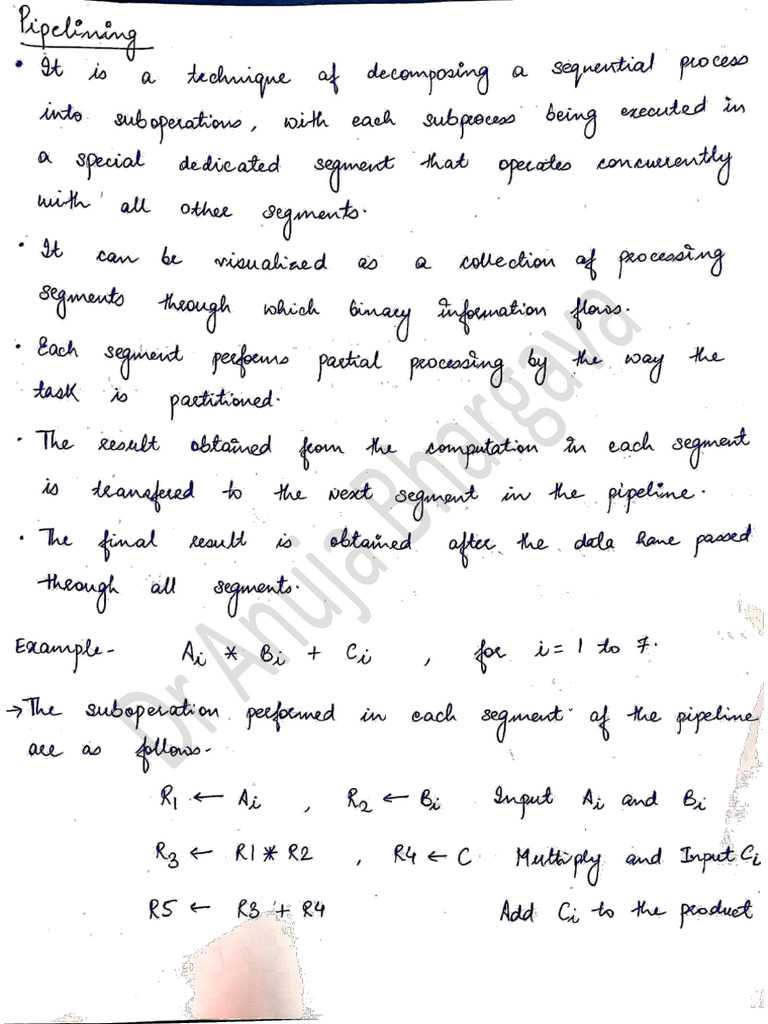 Pipelining
• It is a technique of decomposing a sequential process
into suboperations, with each subprocess being executed in
a special dedicated segment that operates concurrently
with all other segments.
• It can be visualized as a collection of processing
segments through which binary information flows.
• Each segment performs partial processing by the way the
task is partitioned.
• The result obtained from the computation in each segment
is transfered to the next segment in the pipeline.
• The final result is obtained after the data have passed
through all segments.
Example- Ai * Bi + Ci , for i=1 to 7.
→ The suboperation performed in each segment of the pipeline
are as follows-
R1 ← Ai , R2 ← Bi Input Ai and Bi
R3 ← R1 * R2 , R4 ← C Multiply and Input Ci
R5 ← R3 + R4 Add Ci to the product
Dr Anuja Bhargava